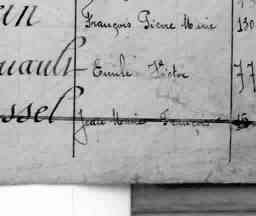 François Pierre Marie 130
uault Emile Victor 77
ssel Jean Marie François